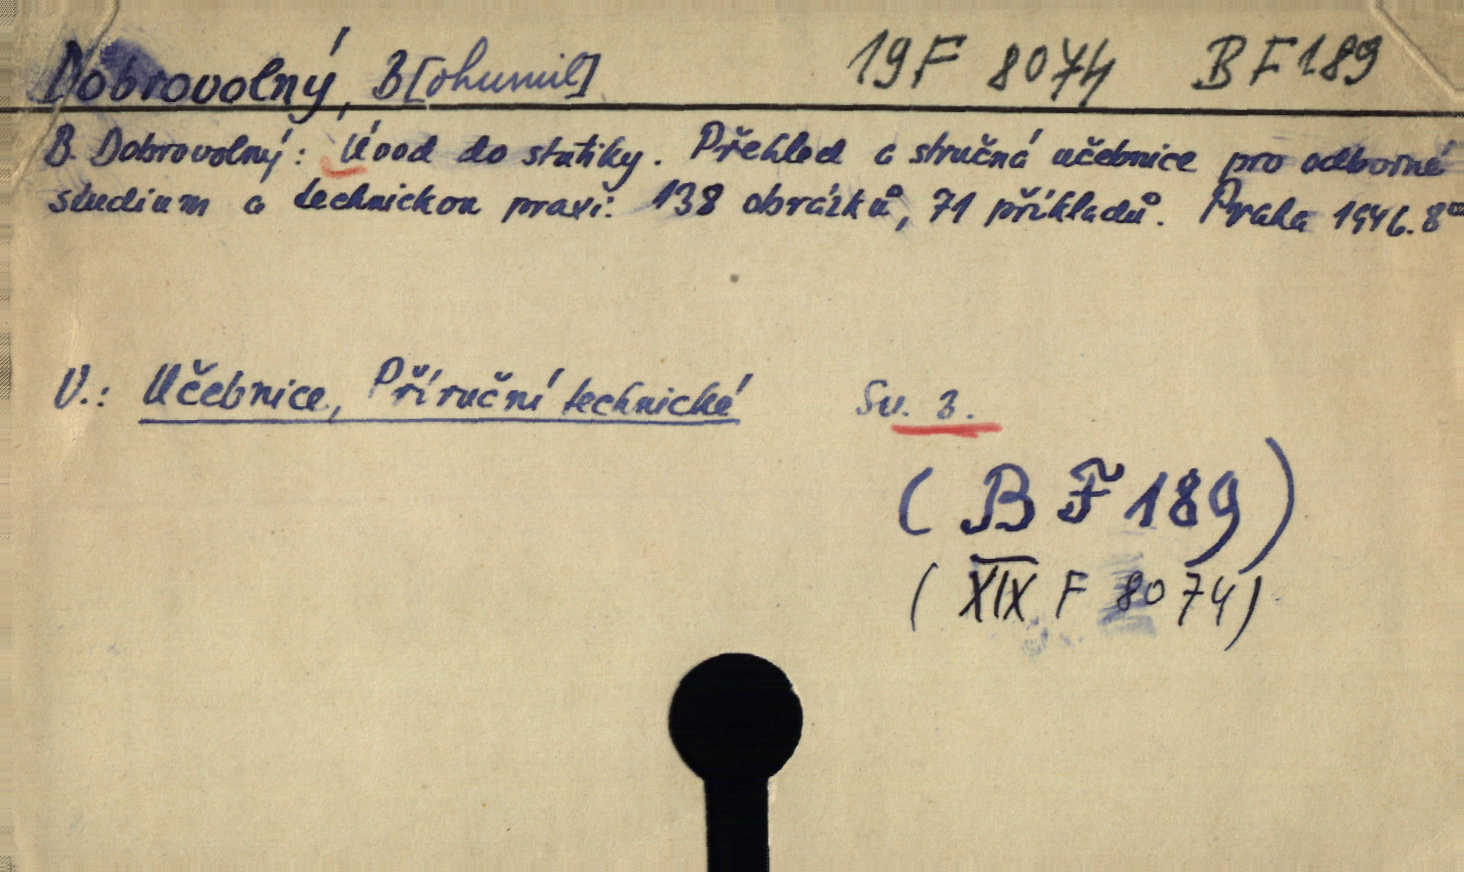 Dobrovolný, B[ohumil] 19F 8074 BF189
B. Dobrovolný: Úvod do statiky. Přehled a stručná učebnice pro odborné
studium a technickou praxi. 138 obrázků, 71 příkladů. Praha 1946. 8°
V.: Učebnice, Příruční technické Sv. 3.
(BF 189)
(XIX F 8074)